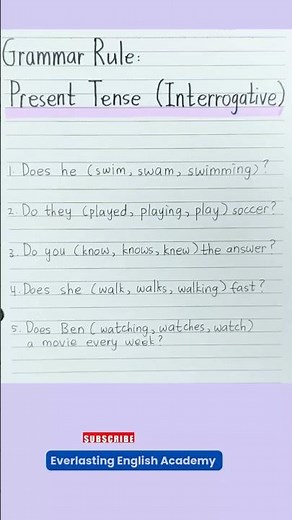 Grammar Rule:
Present Tense (Interrogative)
1. Does he (swim, swam, swimming)?
2. Do they (played, playing, play) soccer?
3. Do you (know, knows, knew) the answer?
4. Does she (walk, walks, walking) fast?
5. Does Ben (watching, watches, watch)
a movie every week?
SUBSCRIBE
Everlasting English Academy